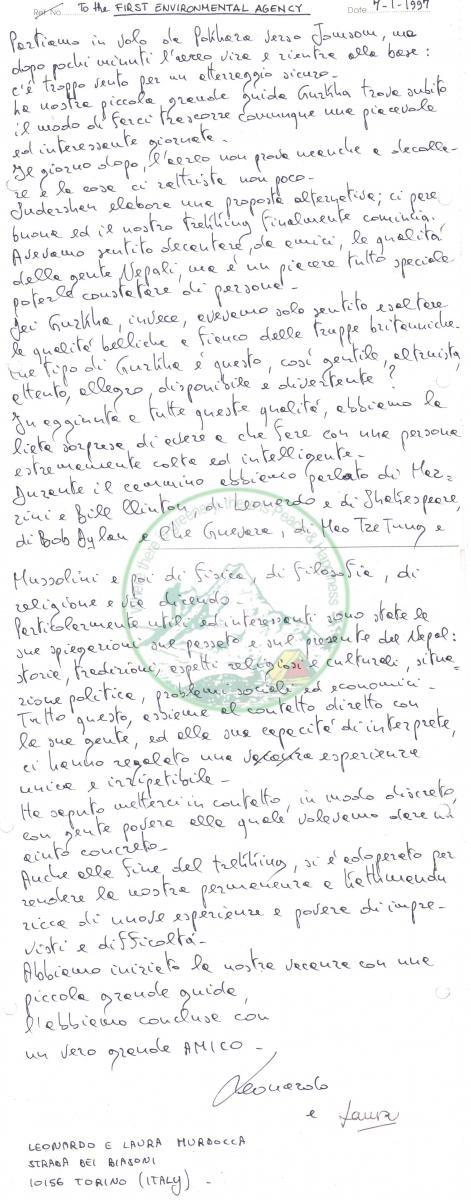 Ref. No. To the FIRST ENVIRONMENTAL AGENCY Date 7-1-1997
Partiamo in volo da Pokhara verso Jomsom, ma
dopo pochi minuti l'aereo vira e rientra alla base:
c'è troppo vento per un atterraggio sicuro-
La nostra piccola grande guida Gurkha trova subito
il modo di farci trascorre comunque una piacevole
ed interessante giornata-
Il giorno dopo, l'aereo non prova neanche a decolla-
re e la cosa ci rattrista non poco-
Sudershan elabora una proposta alternativa; ci pare
buona ed il nostro trekking finalmente comincia.
Avevamo sentito decantare, da amici, le qualità
della gente Nepali, ma è un piacere tutto speciale
poterle constatare di persona-
Dei Gurkha, invece, avevamo solo sentito esaltare
le qualità belliche a fianco delle truppe britanniche.
Che tipo di Gurkha è questo, così gentile, altruista,
attento, allegro, disponibile e divertente?
In aggiunta a tutte queste qualità, abbiamo la
lieta sorpresa di avere a che fare con una persona
estremamente colta ed intelligente-
Durante il cammino abbiamo parlato di Maz=
zini e Bill Clinton, di Leonardo e di Shakespeare,
di Bob Dylan e Che Guevara, di Mao Tze Tung e
Mussolini e poi di fisica, di filosofia, di
religione e via dicendo-
Particolarmente utili ed interessanti sono state le
sue spiegazioni sul passato e sul presente del Nepal:
storia, tradizioni, aspetti religiosi e culturali, situa-
zione politica, problemi sociali ed economici-
Tutto questo, assieme al contatto diretto con
la sua gente, ed alla sua capacità di interprete,
ci hanno regalato una esperienza
unica e irripetibile-
Ha saputo metterci in contatto, in modo discreto,
con gente povera alla quale volevamo dare un
aiuto concreto-
Anche alla fine del trekking, si è adoperato per
rendere la nostra permanenza a Kathmandu
ricca di nuove esperienze e povera di impre-
visti e difficoltà-
Abbiamo iniziato la nostra vacanza con una
piccola grande guida,
l'abbiamo conclusa con
un vero grande AMICO-
Leonardo
e Laura
LEONARDO E LAURA MURDOCCA
STRADA DEI BIASONI
10156 TORINO (ITALY)-